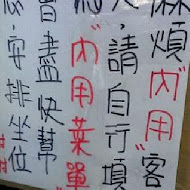 麻煩"內用"客
人,請自行填
"內用菜單"
會盡快幫
您安排坐位